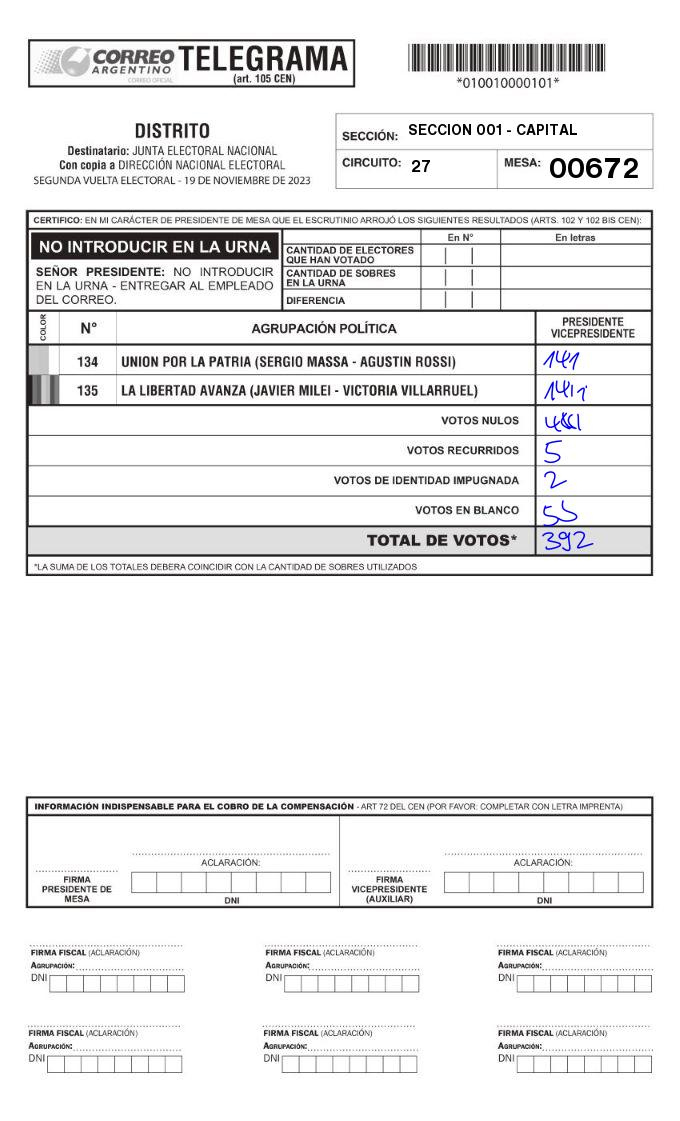 CORREO ARGENTINO
CORREO OFICIAL
TELEGRAMA
(art. 105 CEN)
*010010000101*
DISTRITO
Destinatario: JUNTA ELECTORAL NACIONAL
Con copia a DIRECCIÓN NACIONAL ELECTORAL
SEGUNDA VUELTA ELECTORAL - 19 DE NOVIEMBRE DE 2023
SECCIÓN: SECCION 001 - CAPITAL
CIRCUITO: 27 MESA: 00672
CERTIFICO: EN MI CARÁCTER DE PRESIDENTE DE MESA QUE EL ESCRUTINIO ARROJÓ LOS SIGUIENTES RESULTADOS (ARTS. 102 Y 102 BIS CEN):
NO INTRODUCIR EN LA URNA
SEÑOR PRESIDENTE: NO INTRODUCIR
EN LA URNA - ENTREGAR AL EMPLEADO
DEL CORREO.
En N° En letras
CANTIDAD DE ELECTORES
QUE HAN VOTADO
CANTIDAD DE SOBRES
EN LA URNA
DIFERENCIA
COLOR N° AGRUPACIÓN POLÍTICA PRESIDENTE
VICEPRESIDENTE
134 UNION POR LA PATRIA (SERGIO MASSA - AGUSTIN ROSSI) 141
135 LA LIBERTAD AVANZA (JAVIER MILEI - VICTORIA VILLARRUEL)
VOTOS NULOS
VOTOS RECURRIDOS 5
VOTOS DE IDENTIDAD IMPUGNADA 2
VOTOS EN BLANCO 55
TOTAL DE VOTOS* 392
*LA SUMA DE LOS TOTALES DEBERA COINCIDIR CON LA CANTIDAD DE SOBRES UTILIZADOS
INFORMACIÓN INDISPENSABLE PARA EL COBRO DE LA COMPENSACIÓN - ART 72 DEL CEN (POR FAVOR: COMPLETAR CON LETRA IMPRENTA)
FIRMA
PRESIDENTE DE
MESA
ACLARACIÓN:
DNI
FIRMA
VICEPRESIDENTE
(AUXILIAR)
ACLARACIÓN:
DNI
FIRMA FISCAL (ACLARACIÓN)
AGRUPACIÓN:
DNI
FIRMA FISCAL (ACLARACIÓN)
AGRUPACIÓN:
DNI
FIRMA FISCAL (ACLARACIÓN)
AGRUPACIÓN:
DNI
FIRMA FISCAL (ACLARACIÓN)
AGRUPACIÓN:
DNI
FIRMA FISCAL (ACLARACIÓN)
AGRUPACIÓN:
DNI
FIRMA FISCAL (ACLARACIÓN)
AGRUPACIÓN:
DNI